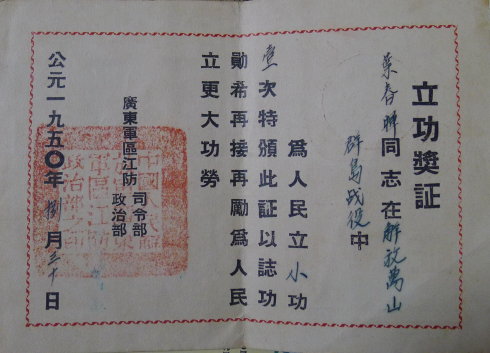 立功獎証
葉春暉同志在解放萬山
群島战役中
為人民立小功
壹次特頒此証以誌功
勛希再接再勵為人民
立更大功勞
廣東軍區江防 司令部
政治部
公元一九五〇年捌月三十日